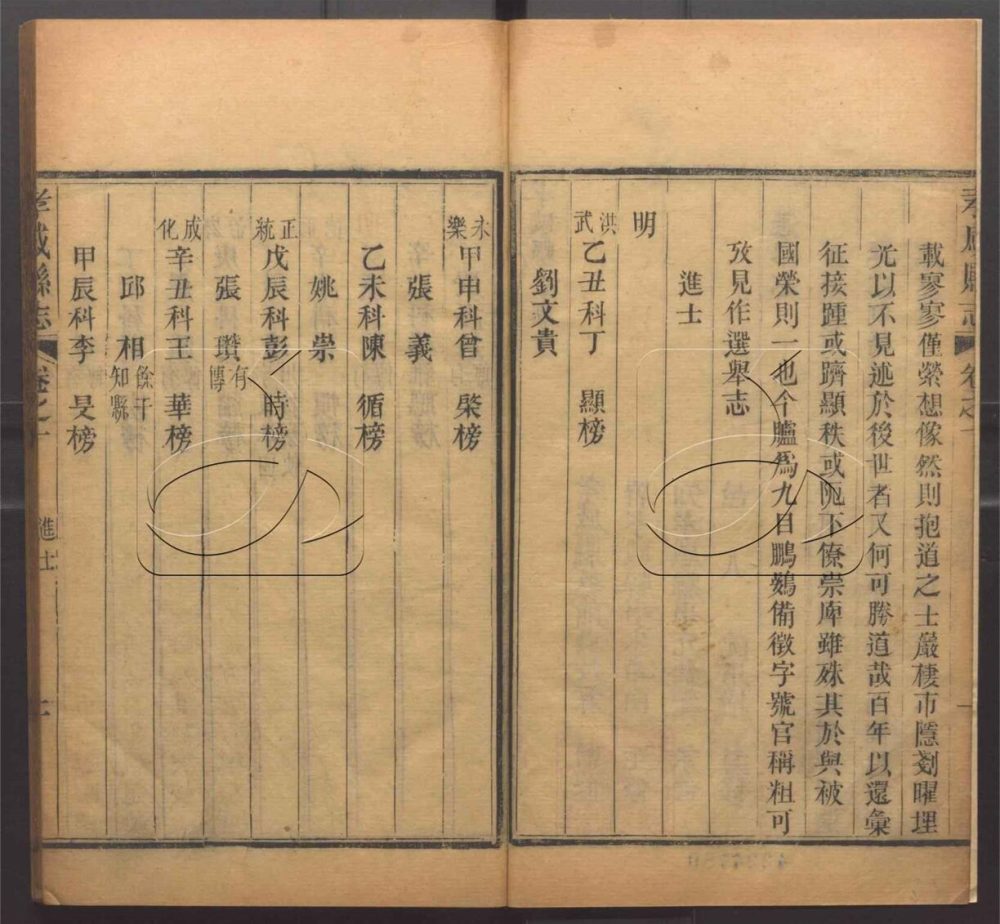 載寥寥僅縈想像然則抱道之士巖棲市隱剗曜埋
光以不見述於後世者又何可勝道哉百年以還彙
征接踵或躋顯秩或阨下僚崇庳雖殊其於與被
國榮則一也今臚為九目鵬鷃備徵字號官稱粗可
攷見作選舉志
進士
明
洪武
乙丑科丁 顯榜
劉文貴
永樂
甲申科曾 棨榜
張 義
乙未科陳 循榜
姚 崇
正統
戊辰科彭 時榜
張 瓚 有傳
成化
辛丑科王 華榜
邱 相 餘干知縣
甲辰科李 旻榜
孝感縣志
卷之
進士